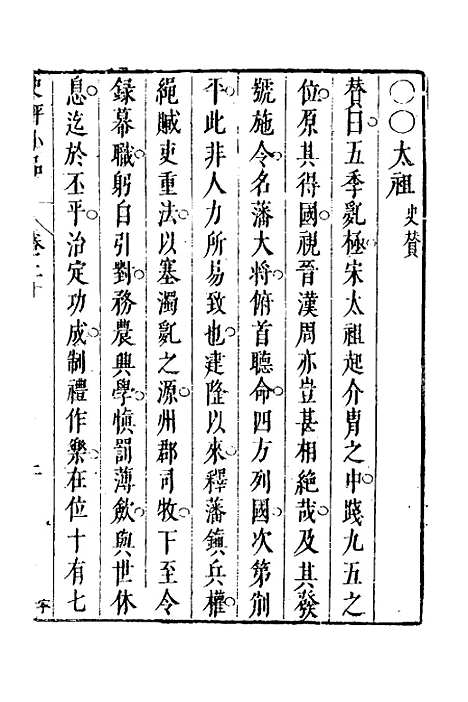 〇〇太祖 史贊
贊曰五季亂極宋太祖起介胄之中踐九五之
位原其得國視晉漢周亦豈甚相絕哉及其發
號施令名藩大將俯首聽命四方列國次第削
平此非人力所易致也建隆以來釋藩鎮兵權
繩贓吏重法以塞濁亂之源州郡司牧下至令
錄幕職躬自引對務農興學慎罰薄斂與世休
息迄於丕平治定功成制禮作樂在位十有七
史評小品 卷二十